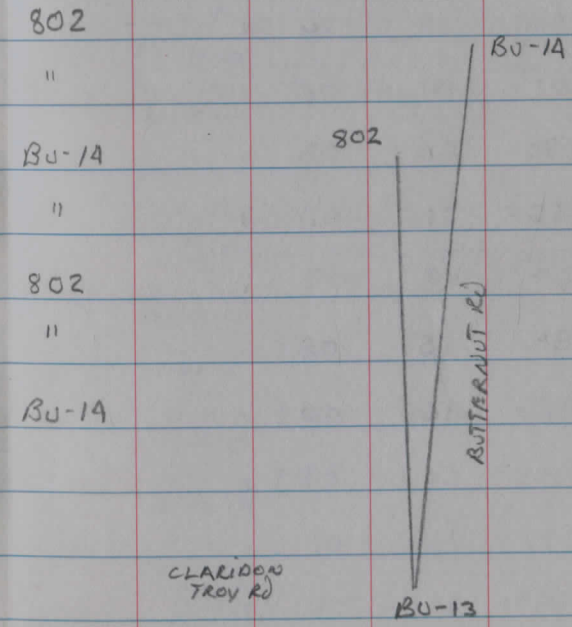 802
"
BU-14
"
802
"
BU-14
BU-14
802
BUTTERNUT Rd
CLARIDON
TROY Rd
BU-13